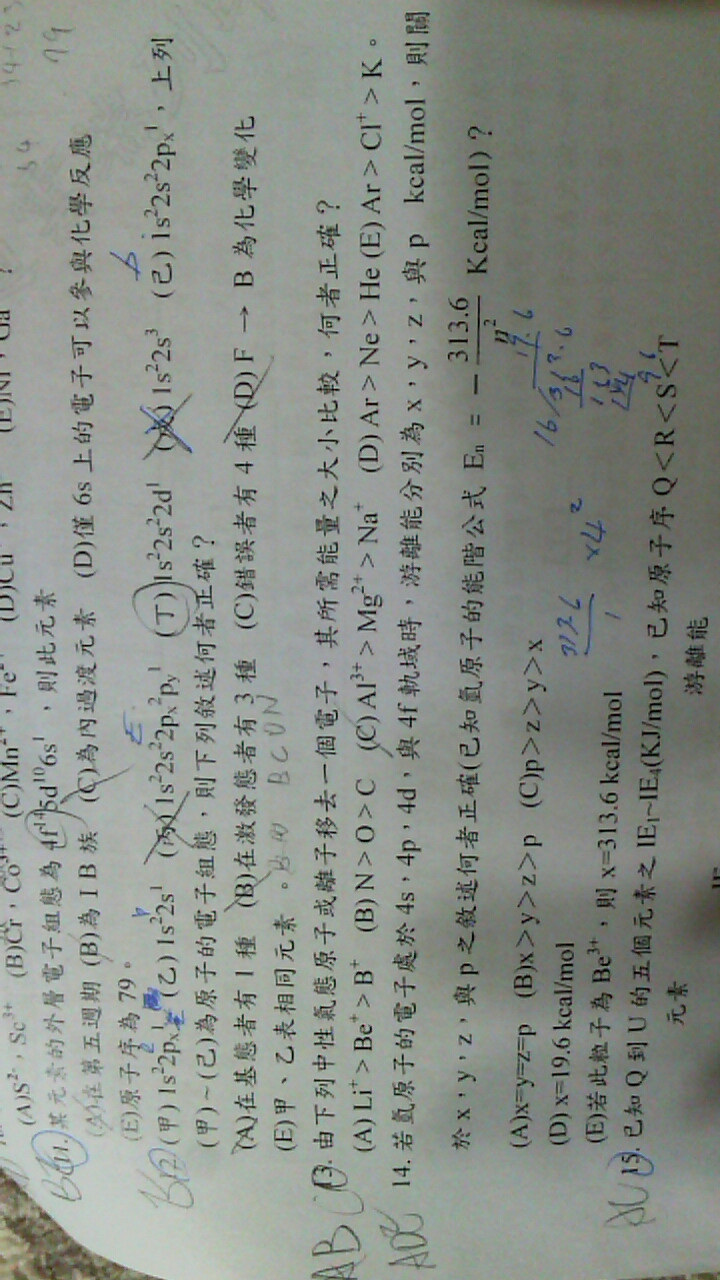 (A)S²⁻，Sc³⁺ (B)Cr，Co³⁺ (C)Mn²⁺，Fe²⁺ (D)Cu，Zn (E)Ni，Ga ?
11. 某元素的外層電子組態為 4f¹⁴5d¹⁰6s¹，則此元素
(A)在第五週期 (B)為 I B 族 (C)為內過渡元素 (D)僅 6s 上的電子可以參與化學反應
(E)原子序為 79。
12. (甲) 1s²2pₓ¹ (乙) 1s²2s¹ (丙) 1s²2s²2pₓ²2pᵧ¹ (丁) 1s²2s²2d¹ (戊) 1s²2s³ (己) 1s²2s²2pₓ¹，上列
(甲)~(己)為原子的電子組態，則下列敘述何者正確？
(A)在基態者有 1 種 (B)在激發態者有 3 種 (C)錯誤者有 4 種 (D) F → B 為化學變化
(E)甲、乙表相同元素。
B C O N
AB
13. 由下列中性氣態原子或離子移去一個電子，其所需能量之大小比較，何者正確？
(A) Li⁺ > Be⁺ > B⁺ (B) N > O > C (C) Al³⁺ > Mg²⁺ > Na⁺ (D) Ar > Ne > He (E) Ar > Cl⁺ > K。
14. 若氫原子的電子處於 4s，4p，4d，與 4f 軌域時，游離能分別為 x，y，z，與 p kcal/mol，則關
於 x，y，z，與 p 之敘述何者正確(已知氫原子的能階公式 Eₙ = − 313.6/n² Kcal/mol)？
(A)x=y=z=p (B)x>y>z>p (C)p>z>y>x
(D) x=19.6 kcal/mol
(E)若此粒子為 Be³⁺，則 x=313.6 kcal/mol
313.6/1 ×4²
19.6
16/313.6
16
153
144
96
15. 已知 Q 到 U 的五個元素之 IE₁~IE₄(KJ/mol)，已知原子序 Q<R<S<T
元素 游離能